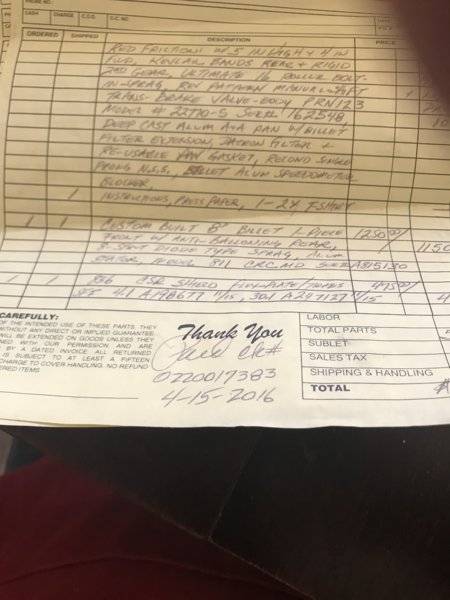 PHONE NO.
CASH CHARGE C.O.D.
ORDERED SHIPPED DESCRIPTION PRICE
RED FRICTIONS W 5 IN HIGH & 4 IN
FWD, KEVLAR BANDS REAR & RIGID
2ND GEAR, ULTIMATE 16 ROLLER BOLT-
IN-SPRAG, REV PATTERN MANUAL SHIFT
TRANS-BRAKE VALVE-BODY PRN123
MODEL # 22710-5 162548
DEEP CAST ALUM PAN W/BILLET
FILTER EXTENSION, DACRON FILTER &
RE-USABLE PAN GASKET, SINGLE
PRONG N.S.S., BILLET ALUM SPEEDOMETER
BLOCKER,
1 INSTRUCTIONS, PRESS PAPER, 1-2X T-SHIRT
1 1 CUSTOM BUILT 8" BILLET 1-PIECE 1250 00/ 1150
FRONT W/ANTI-BALLOONING REAR,
SPRAG, ALUM
STATOR, MODEL 811 A815130
1 1 CSR SHIELD 475
SFI 4.1 11/15, 30.1
CAREFULLY:
OF THE INTENDED USE OF THESE PARTS, THEY
WITHOUT ANY DIRECT OR IMPLIED GUARANTEE
WILL BE EXTENDED ON GOODS UNLESS THEY
NED WITH OUR PERMISSION AND ARE
BY A DATED INVOICE. ALL RETURNED
IS SUBJECT TO AT LEAST A FIFTEEN
CHARGE TO COVER HANDLING. NO REFUND
RED ITEMS
Thank You
Paid ck#
0220017383
4-15-2016
LABOR
TOTAL PARTS
SUBLET
SALES TAX
SHIPPING & HANDLING
TOTAL